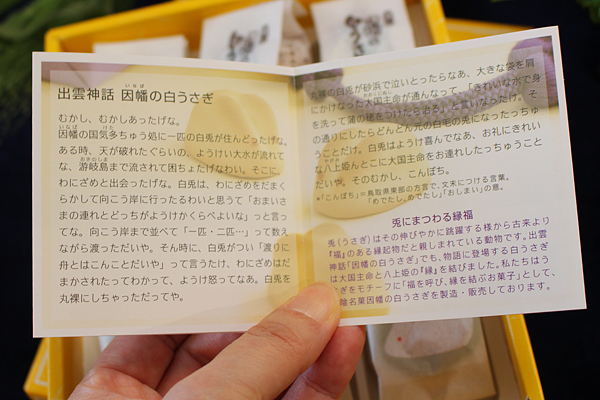 出雲神話 因幡の白うさぎ
いなば
むかし、むかしあったげな。
因幡の国気多ちゅう処に一匹の白兎が住んどったげな。
いなば けた
ある時、天が破れたぐらいの、ようけい大水が流れて
な、游岐島まで流されて困ちょたげなわい。そこに、
おきのしま
わにざめと出会ったげな。白兎は、わにざめをだまく
らかして向こう岸に行ったるわいと思うて「おまいさ
まの連れとどっちがようけかくらべよいな」っと言っ
てな。向こう岸まで並べて「一匹・二匹…」って数え
ながら渡っただいや。そん時に、白兎がつい「渡りに
舟とはこんことだいや」って言うたけ、わにざめはだ
まかされたってわかって、ようけ怒ってなあ。白兎を
丸裸にしちゃっただってや。
丸裸の白兎が砂浜で泣いとったらなあ、大きな袋を肩
にかけなった大国主命が通んなって、「きれいな水で身
を洗って蒲の穂をつけたら治る」と言いなったけ。そ
の通りにしたらどんどん元の白毛の兎になったっちゅ
うことだけ。白兎はようけ喜んでなあ、お礼にきれい
な八上姫んとこに大国主命をお連れしたっちゅうこと
だいや。そのむかし、こんぽち。
*「こんぽち」=鳥取県東部の方言で、文末につける言葉。
「めでたし、めでたし」「おしまい」の意。
兎にまつわる縁福
兎(うさぎ)はその伸びやかに跳躍する様から古来より
『福』のある縁起物だと親しまれている動物です。出雲
神話「因幡の白うさぎ」でも、物語に登場する白うさぎ
は大国主命と八上姫の『縁』を結びました。私たちはう
さぎをモチーフに「福を呼び、縁を結ぶお菓子」として、
陰名菓因幡の白うさぎを製造・販売しております。